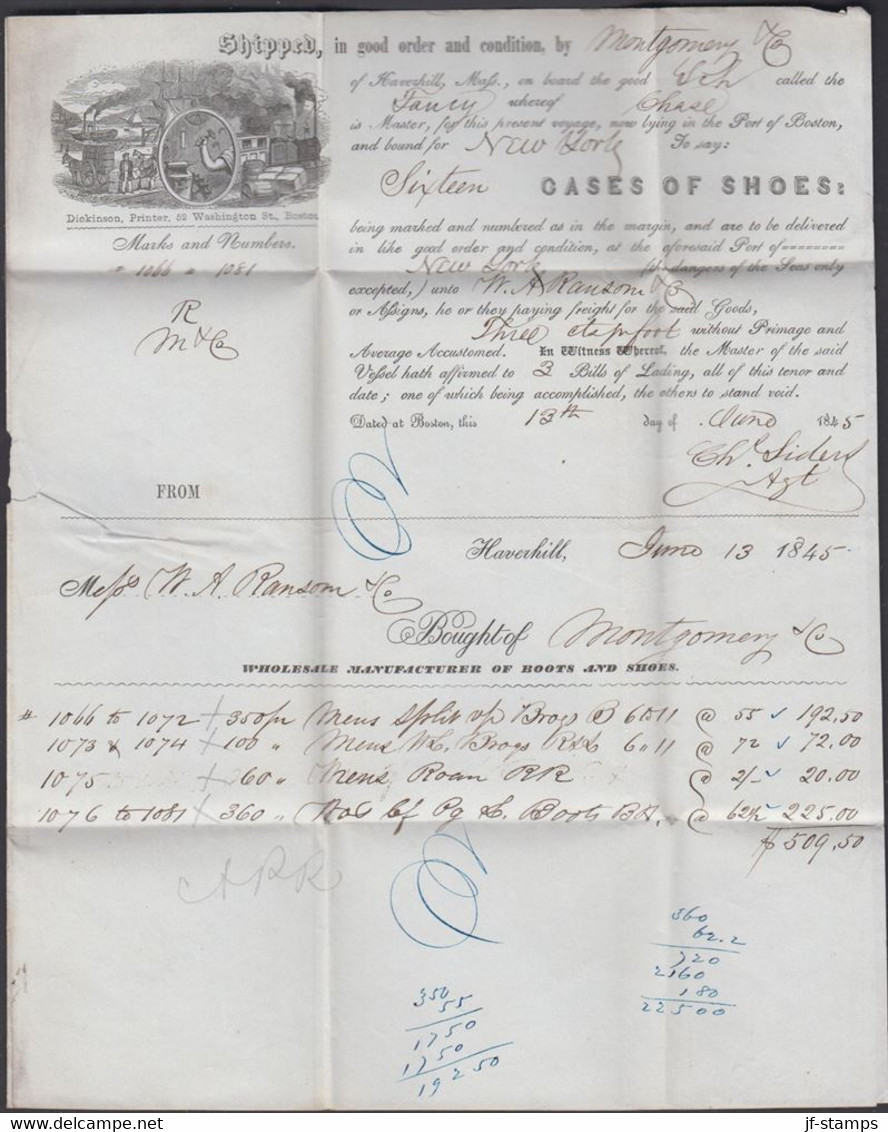 Shipped, in good order and condition, by Montgomery & Co
of Haverhill, Mass., on board the good Sch called the
Fancy whereof Chase
is Master, for this present voyage, now lying in the Port of Boston,
and bound for New York To say:
Sixteen CASES OF SHOES:
Dickinson, Printer, 52 Washington St., Boston
being marked and numbered as in the margin, and are to be delivered
Marks and Numbers.
in like good order and condition, at the aforesaid Port of
" 1066 " 1081
New York (the dangers of the Seas only
excepted,) unto W. A. Ransom & Co
R
or Assigns, he or they paying freight for the said Goods,
M & Co
Three cts pr foot without Primage and
Average Accustomed. In Witness Whereof, the Master of the said
Vessel hath affirmed to 3 Bills of Lading, all of this tenor and
date; one of which being accomplished, the others to stand void.
Dated at Boston, this 13th day of June 1845
Agt
FROM
Haverhill, June 13 1845
Messrs W. A. Ransom & Co
Bought of Montgomery & Co
WHOLESALE MANUFACTURER OF BOOTS AND SHOES.
# 1066 to 1072 350 pr Mens split up Brogs B 6 to 11 @ 55 192.50
1073 & 1074 100 " Mens Brogs 6 " 11 @ 72 72.00
1075 60 " Mens Roan RR @ 2/- 20.00
1076 to 1081 360 " Boots @ 62½ 225.00
$509.50
360
62.2
720
2160
180
22500
350
55
1750
1750
19250
www.delcampe.net
jf-stamps